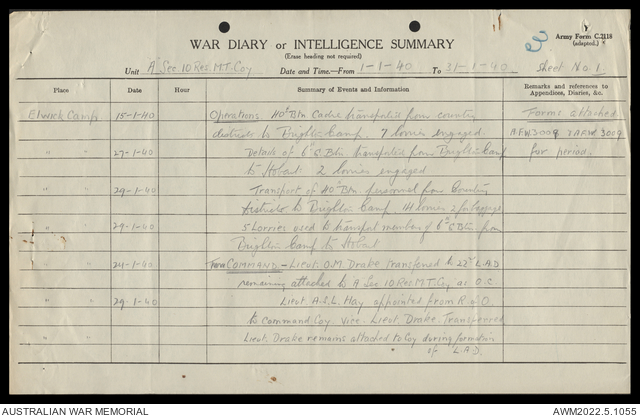 Army Form C.2118
(adapted.)
WAR DIARY or INTELLIGENCE SUMMARY
(Erase heading not required)
Unit A Sec. 10 Res M.T. Coy Date and Time.—From 1-1-40 To 31-1-40. Sheet No 1.
Place Date Hour Summary of Events and Information Remarks and references to Appendices, Diaries, &c.
Elwick Camp. 15-1-40 Operations. 40th Btn Cadre transported from country Forms attached
districts to Brighton Camp. 7 lorries engaged AFW3008 & AFW 3009
" " 27-1-40 Details of 6th G Btn transported from Brighton Camp for period.
to Hobart. 2 lorries engaged
" " 29-1-40 Transport of 40th Btn. personnel from Country
districts to Brighton Camp. 14 lorries 2 for baggage
" " 29-1-40 5 Lorries used to transport members of 6th G Btn from
Brighton Camp to Hobart
" " 24-1-40 COMMAND - Lieut. O.M. Drake transferred to 22nd L.A.D
remaining attached to A Sec 10 Res M.T. Coy as O.C.
" 29-1-40 Lieut A.S.L. Hay appointed from R of O
to Command Coy. vice. Lieut. Drake Transferred
Lieut. Drake remains attached to Coy during formation
of L.A.D.
AUSTRALIAN WAR MEMORIAL AWM2022.5.1055